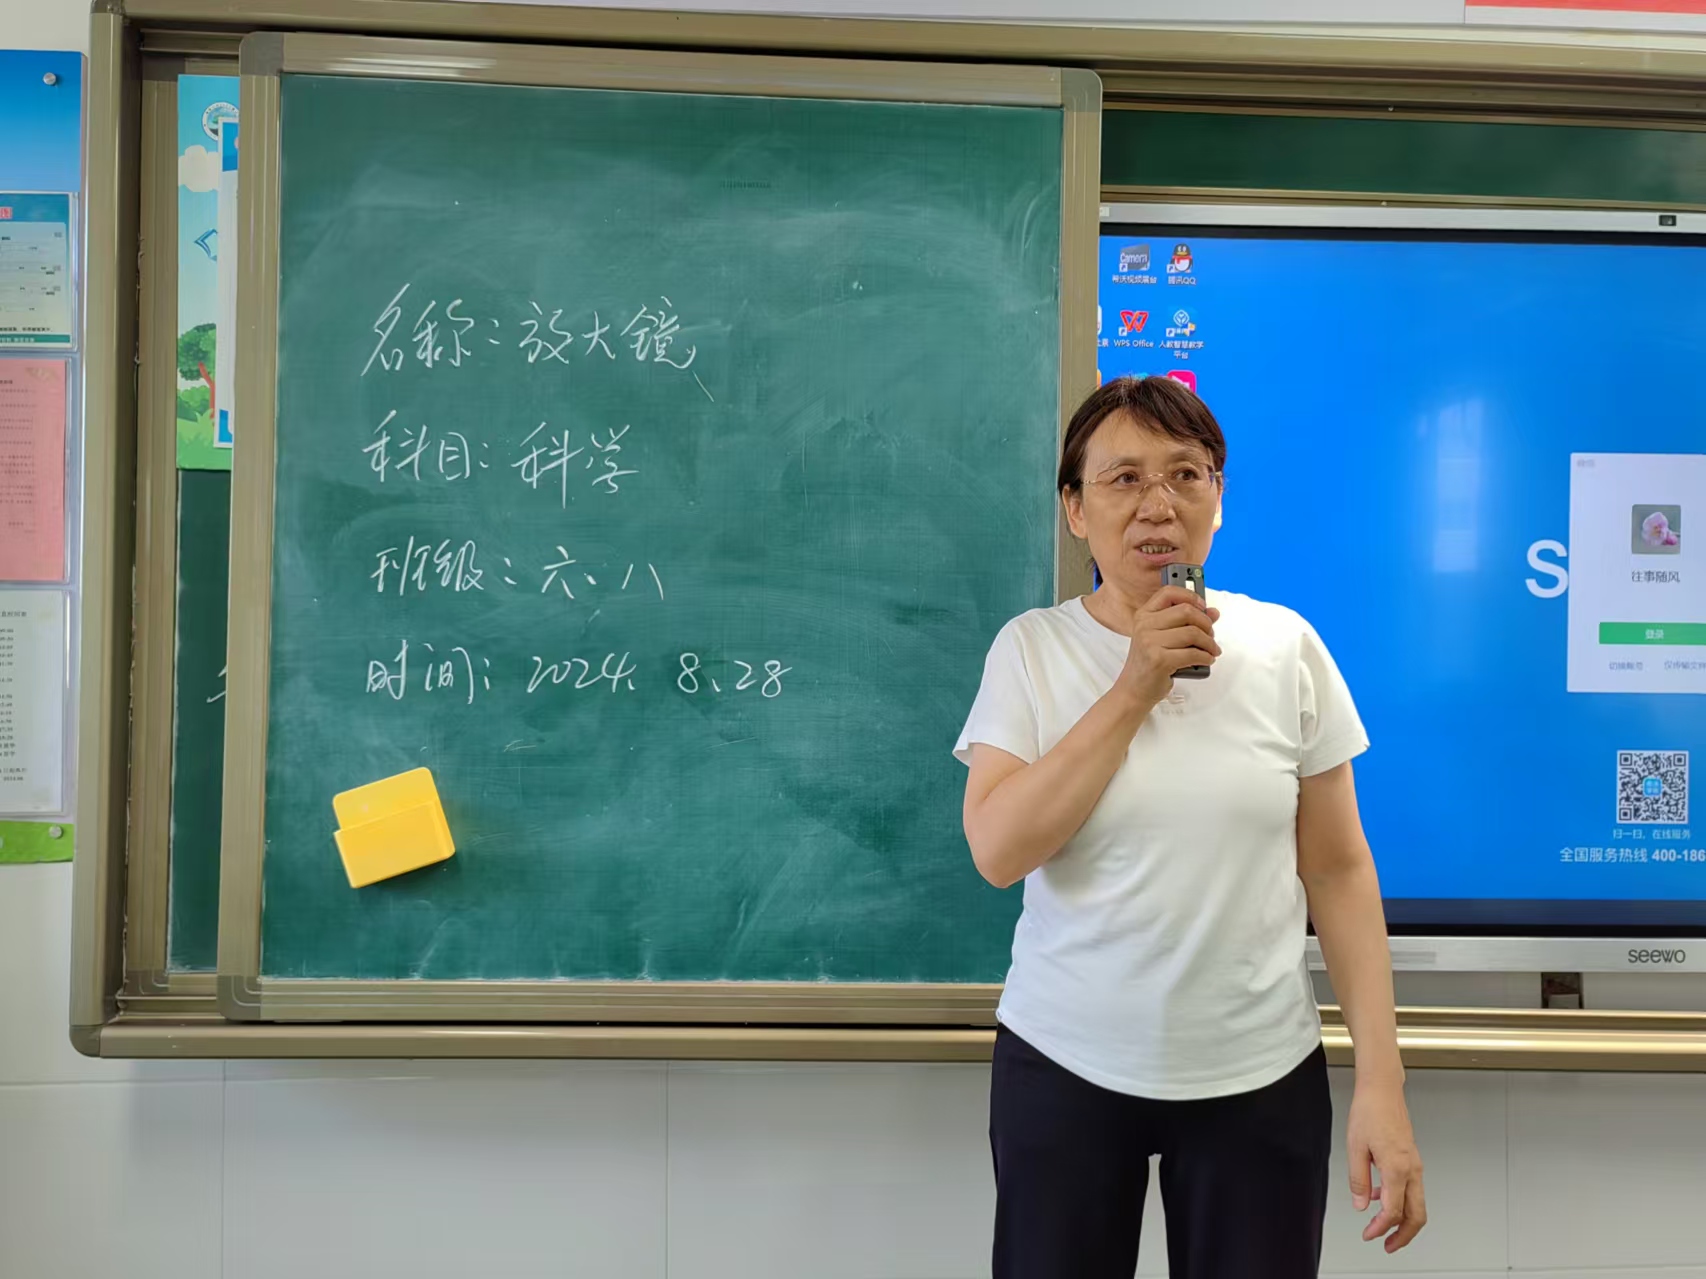 名称：放大镜
科目：科学
班级：六、八
时间：2024、8、28
Camera
希沃视频展台
腾讯QQ
WPS Office
人教智慧教学
平台
S
往事随风
登录
切换账号
仅传输文件
扫一扫，在线服务
全国服务热线 400-186
seewo